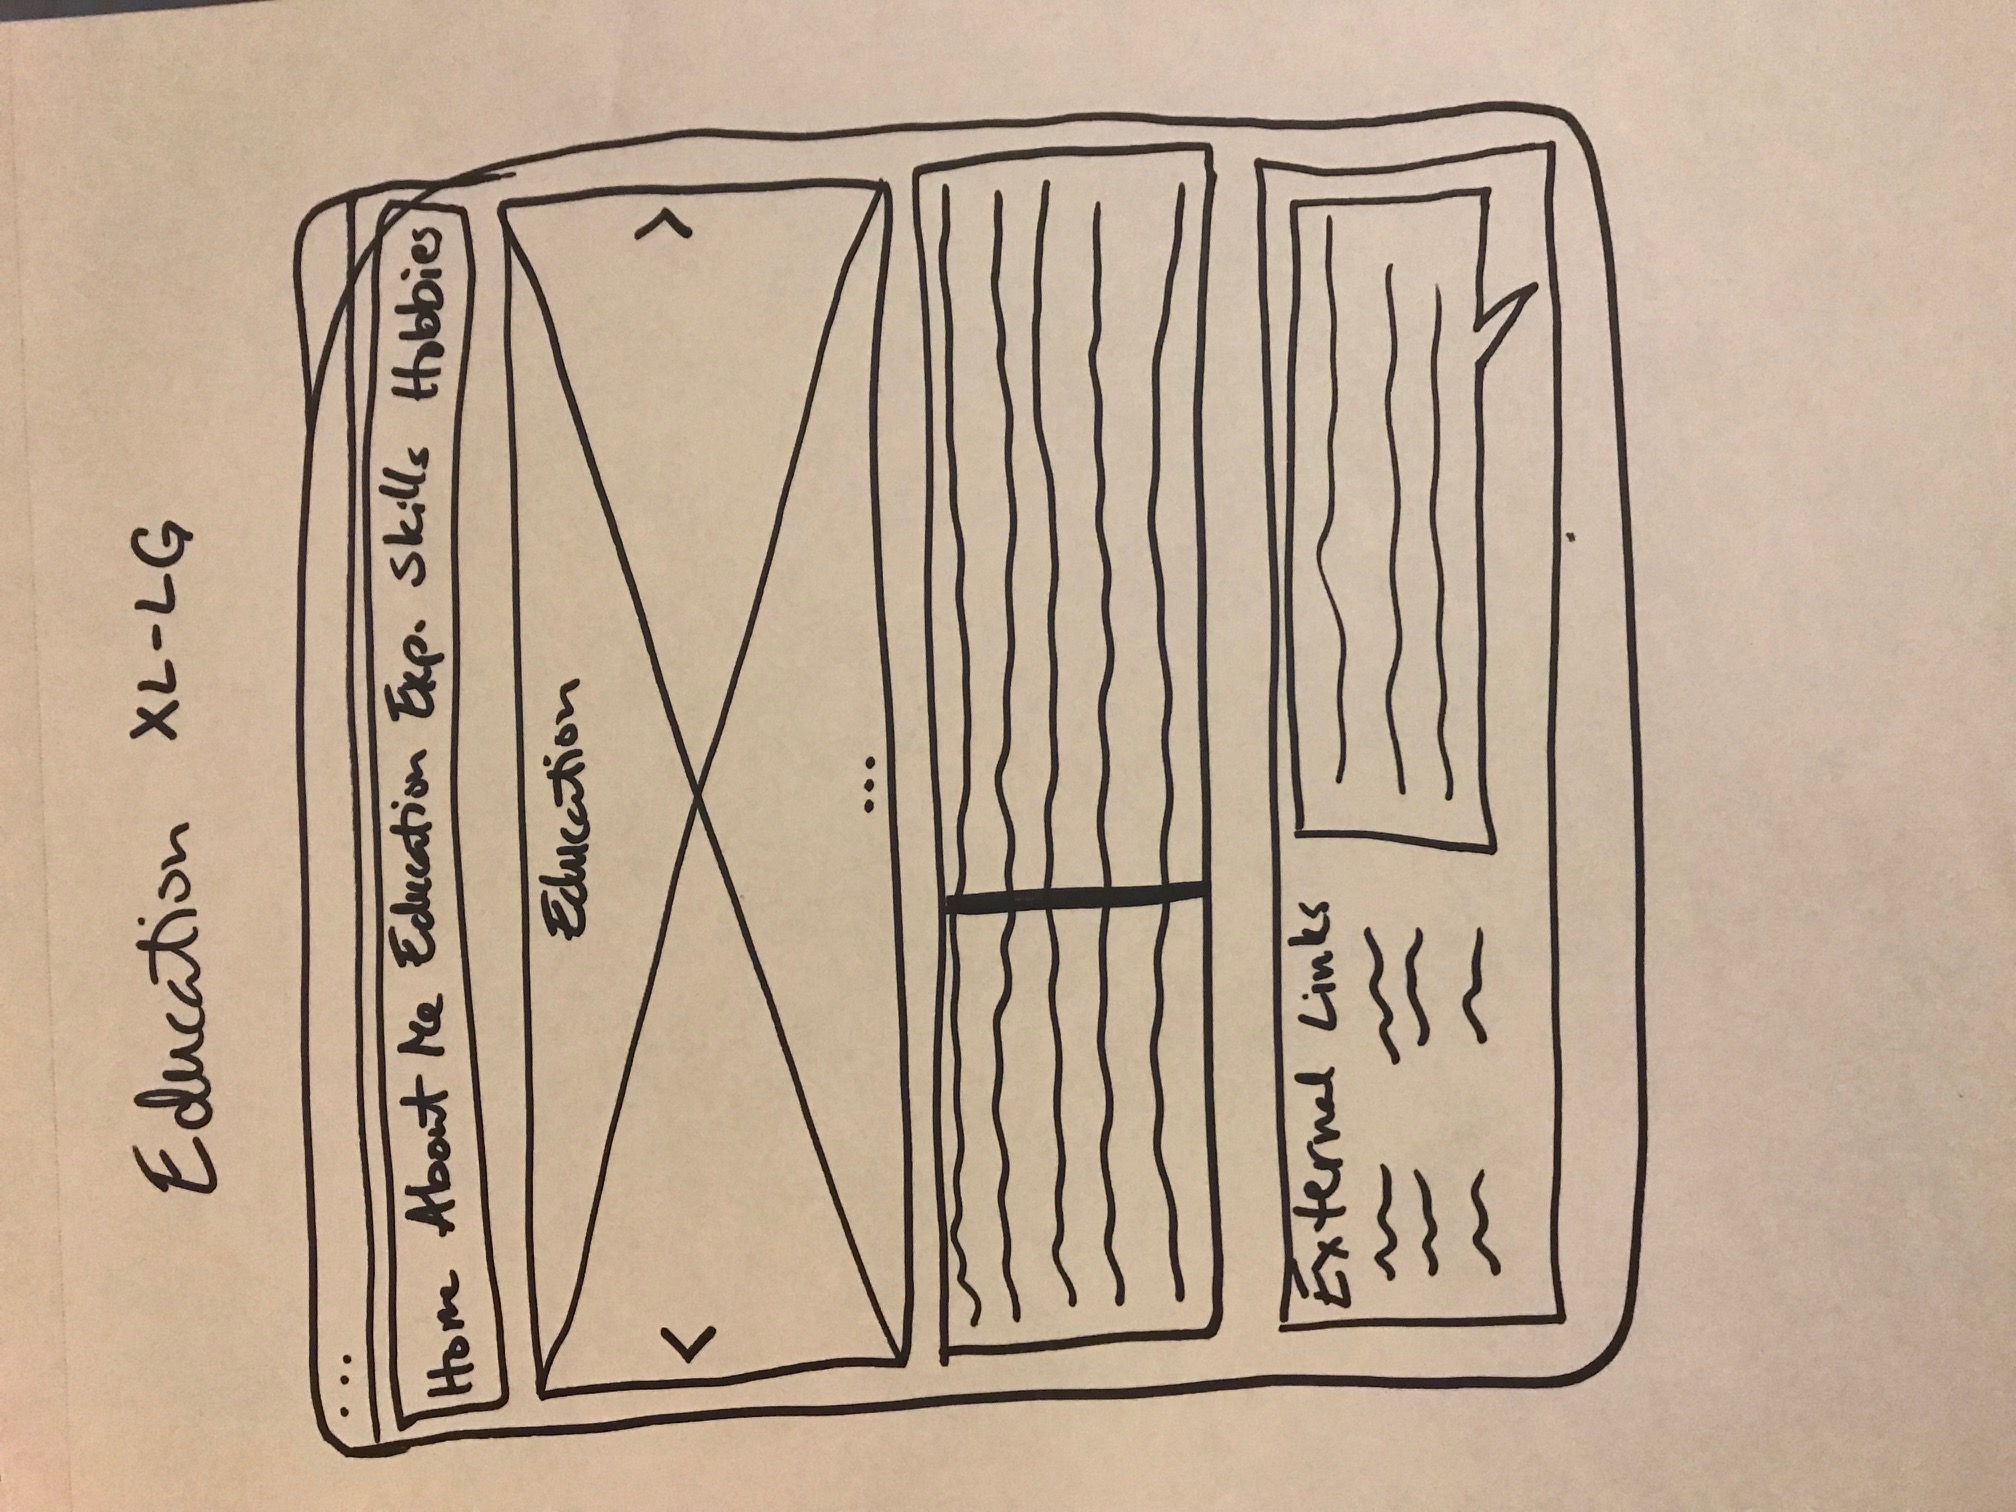 Education XL-LG
Home About Me Education Exp. Skills Hobbies
Education
< >
...
External Links